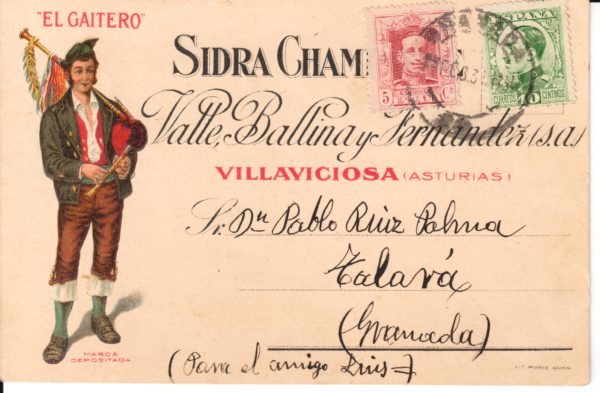 "EL GAITERO"
SIDRA CHAM
Valle, Ballina y Fernández (s.a.)
VILLAVICIOSA (ASTURIAS)
Sr. Dn Pablo Ruiz Palma
Talará
(Granada)
(Para el amigo Luis)
MARCA
DEPOSITADA
ESPAÑA
CORREOS
CENTIMOS
5